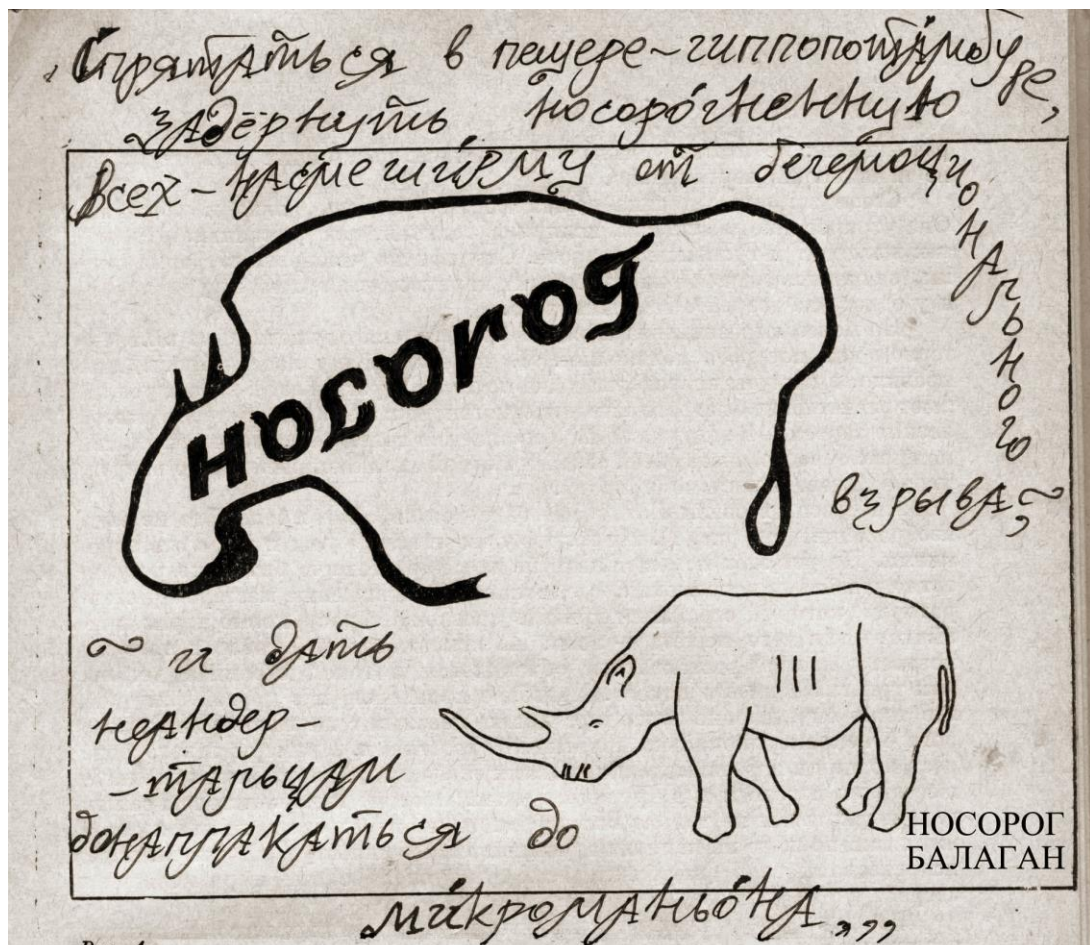 Спрятаться в пещере~гиппопотамбуре,
задёрнуть носоро́гненную
Всех-насмеши́рму от бегемоционального
взрыва~,
~ и дать
неандер-
-тальцам
донаплакаться до
ми́кроманьо́на,,,
носорог
НОСОРОГ
БАЛАГАН